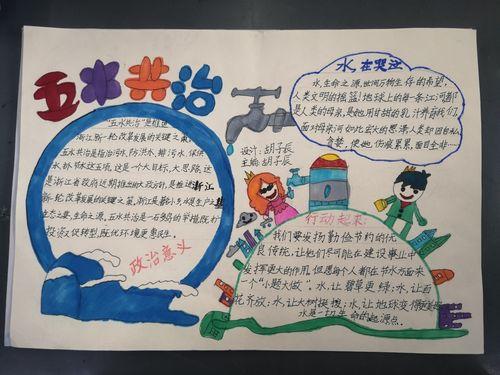 五水共治
"五水共治"是推进
浙江新一轮改革发展的关键之策
五水共治是指治污水、防洪水、排涝水、保供
水、抓节水这五项，这是一个大目标，大思路，这
是浙江省政府近期推出的大政方针，是推进浙江
新一轮改革发展的关键之策，浙江是着
生态之要，生命之源，五水共治是一石多鸟的举措，既扩
投资又促转型，既优环境更惠民生。
政治意义
设计：胡子辰
主编：胡子辰
水在哭泣
水，生命之源，世间万物生存的希望，
人类文明的摇篮！地球上的每一条江河都
是人类的母亲，是她用甘甜的乳汁养育我们，
面对母亲河如此宏大的恩泽，人类却因自私
贪婪，使她伤痕累累，面目全非……
行动起来：
我们要发扬勤俭节约的优
良传统，让他们尽可能在建设事业中
发挥更大的作用，但愿每个人都在节水方面来
一个"小题大做"。水，让碧草更绿；水，让百
花齐放；水，让大树挺拔；水，让地球变得更美丽
水是一切生命的起源点。